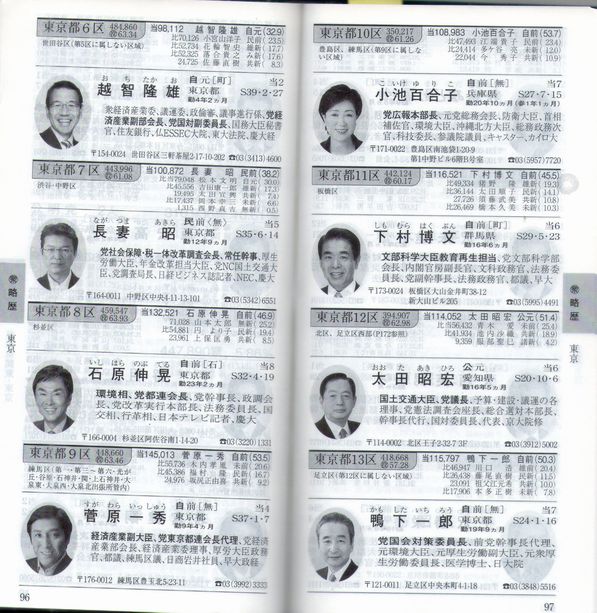 東京都6区 484,860 ㊥63.34
世田谷区(第5区に属しない区域)
当98,112 越智隆雄 自元(32.9)
比70,126 小宮山洋子 民前(23.5)
比52,734 花輪智史 維新(17.7)
比52,325 落合貴之 み新(17.6)
24,725 佐藤直樹 共新(8.3)
おち たかお
越智隆雄
自元[町] 当2
東京都 S39・2・27
勤4年2ヵ月
衆経済産業委、議運委、政倫審、議事進行係、党経
済産業副部会長、党国対副委員長、国務大臣秘書
官、住友銀行、仏ESSEC大院、東大法院、慶大経
〒154-0024 世田谷区三軒茶屋2-17-10-202 ☎03(3413)4600
東京都7区 443,996 ㊥61.08
渋谷・中野区
当100,872 長妻 昭 民前(38.2)
比79,048 松本文明 自元(30.0)
比45,556 吉田康一郎 維新(17.3)
19,495 太田宜興 共新(7.4)
比17,637 岡本幸三 未新(6.6)
1,315 西野貞吉 無新(0.5)
ながつま あきら
長妻 昭
民前〈無〉 当5
東京都 S35・6・14
勤12年9ヵ月
党社会保障・税一体改革調査会長、常任幹事、厚生
労働大臣、年金改革担当大臣、党NC国土交通大
臣、党調査局長、日経ビジネス誌記者、NEC、慶大
〒164-0011 中野区中央4-11-13-101 ☎03(5342)6551
東京都8区 459,547 ㊥63.93
杉並区
当132,521 石原伸晃 自前(46.9)
71,028 山本太郎 無新(25.2)
比54,881 円より子 民新(19.4)
23,961 上保匡勇 共新(8.5)
いしはら のぶてる
石原伸晃
自前[石] 当8
東京都 S32・4・19
勤23年2ヵ月
環境相、党都連会長、党幹事長、政調会
長、党改革実行本部長、法務委員長、国
交相、行革相、日本テレビ記者、慶大
〒166-0004 杉並区阿佐谷南1-14-20 ☎03(3220)1331
東京都9区 468,660 ㊥63.46
練馬区(第一・第三〜第六・光が
丘・谷原・石神井・関・上石神井・大
泉東・大泉西・大泉北出張所管内)
当145,013 菅原一秀 自前(53.5)
比55,736 木内孝胤 未前(20.6)
比45,386 福村隆 維新(16.7)
24,976 坂尻正由喜 共新(9.2)
すがわら いっしゅう
菅原一秀
自前[無] 当4
東京都 S37・1・7
勤9年4ヵ月
経済産業副大臣、党東京都連会長代理、党経済産
業部会長、経済産業委理事、厚労大臣政務
官、都議、練馬区議、日商岩井社員、早大政経
〒176-0012 練馬区豊玉北5-23-11 ☎03(3992)3333
96
㊗略歴
東京
東京都10区 350,217 ㊥61.26
豊島区、練馬区(第9区に属しな
い区域)
当108,983 小池百合子 自前(53.7)
比47,493 江端貴子 民前(23.4)
比24,414 多ケ谷亮 未新(12.0)
22,044 今秀子 共新(10.9)
こいけ ゆりこ
小池百合子
自前[無] 当7
兵庫県 S27・7・15
勤20年10ヵ月(参1年1ヵ月)
党広報本部長、元党総務会長、防衛大臣、首相
補佐官、環境大臣、沖縄北方大臣、総務政務次
官、科技委長、参議院議員、キャスター、カイロ大
〒171-0022 豊島区南池袋1-20-9
第1中野ビル6階B号室 ☎03(5957)7720
東京都11区 442,124 ㊥60.17
板橋区
当116,521 下村博文 自前(45.5)
比49,334 猪野隆 維新(19.3)
比44,913 太田順子 民新(17.5)
27,726 須藤武美 共新(10.8)
比26,469 橋本久美 未新(10.3)
しもむら はくぶん
下村博文
自前[町] 当6
群馬県 S29・5・23
勤16年6ヵ月
文部科学大臣教育再生担当、党文部科学部
会長、内閣官房副長官、文科政務官、法務委
員長、党副幹事長、法務政務次官、都議、早大
〒173-0024 板橋区大山金井町38-12
新大山ビル205 ☎03(5995)4491
東京都12区 394,907 ㊥62.98
北区、足立区西部(P172参照)
当114,052 太田昭宏 公元(51.4)
比56,432 青木愛 未前(25.4)
比41,934 池内沙織 共新(18.9)
9,359 服部聖巳 諸新(4.2)
おおた あきひろ
太田昭宏
公元 当6
愛知県 S20・10・6
勤16年5ヵ月
国土交通大臣、党議長、予算・建設・議運の各
理事、党憲法調査会座長、総合選対本部長、
幹事長代行、国対委員長、代表、京大院修
〒114-0002 北区王子2-32-7 3F ☎03(3912)5002
東京都13区 418,668 ㊥57.28
足立区(第12区に属しない区域)
当115,797 鴨下一郎 自前(50.3)
比46,947 川口浩 維前(20.4)
比26,438 藤尾直樹 民新(11.5)
23,091 祖父江元希 共新(10.0)
比17,906 本多正樹 未新(7.8)
かもした いちろう
鴨下一郎
自前[無] 当7
東京都 S24・1・16
勤19年9ヵ月
党国会対策委員長、前党幹事長代理、
元環境大臣、元厚生労働副大臣、元衆厚
生労働委員長、医学博士、日大院
〒121-0011 足立区中央本町4-1-18 ☎03(3848)5516
㊗略歴
東京
97